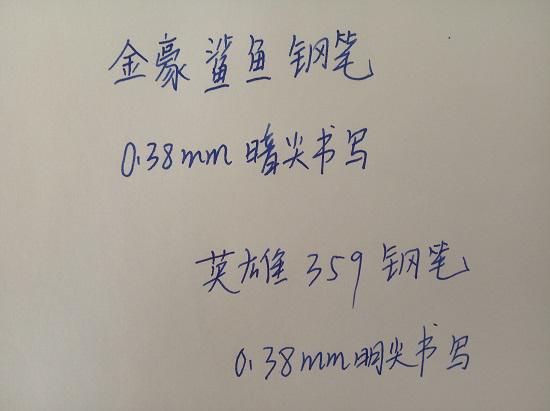 金豪鲨鱼钢笔
0.38mm暗尖书写
英雄359钢笔
0.38mm明尖书写